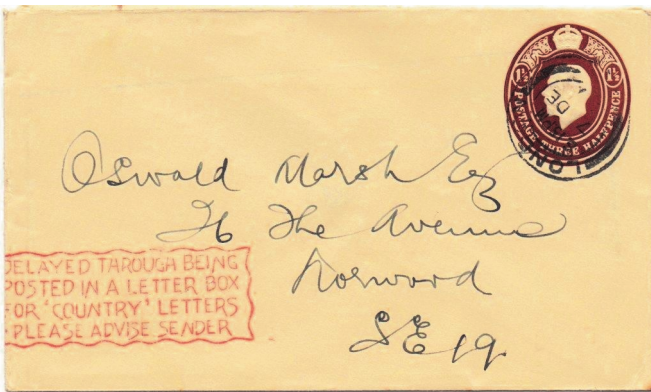 1½ 1½
POSTAGE THREE HALFPENCE
LON
DE
Oswald Marsh Esq
76 The Avenue
Norwood
SE 19
DELAYED THROUGH BEING
POSTED IN A LETTER BOX
FOR 'COUNTRY' LETTERS
PLEASE ADVISE SENDER